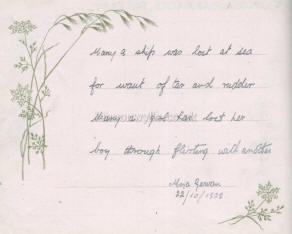 Many a ship was lost at sea
for want of tar and rudder
Many a girl has lost her
boy through flirting with another
22/10/1928